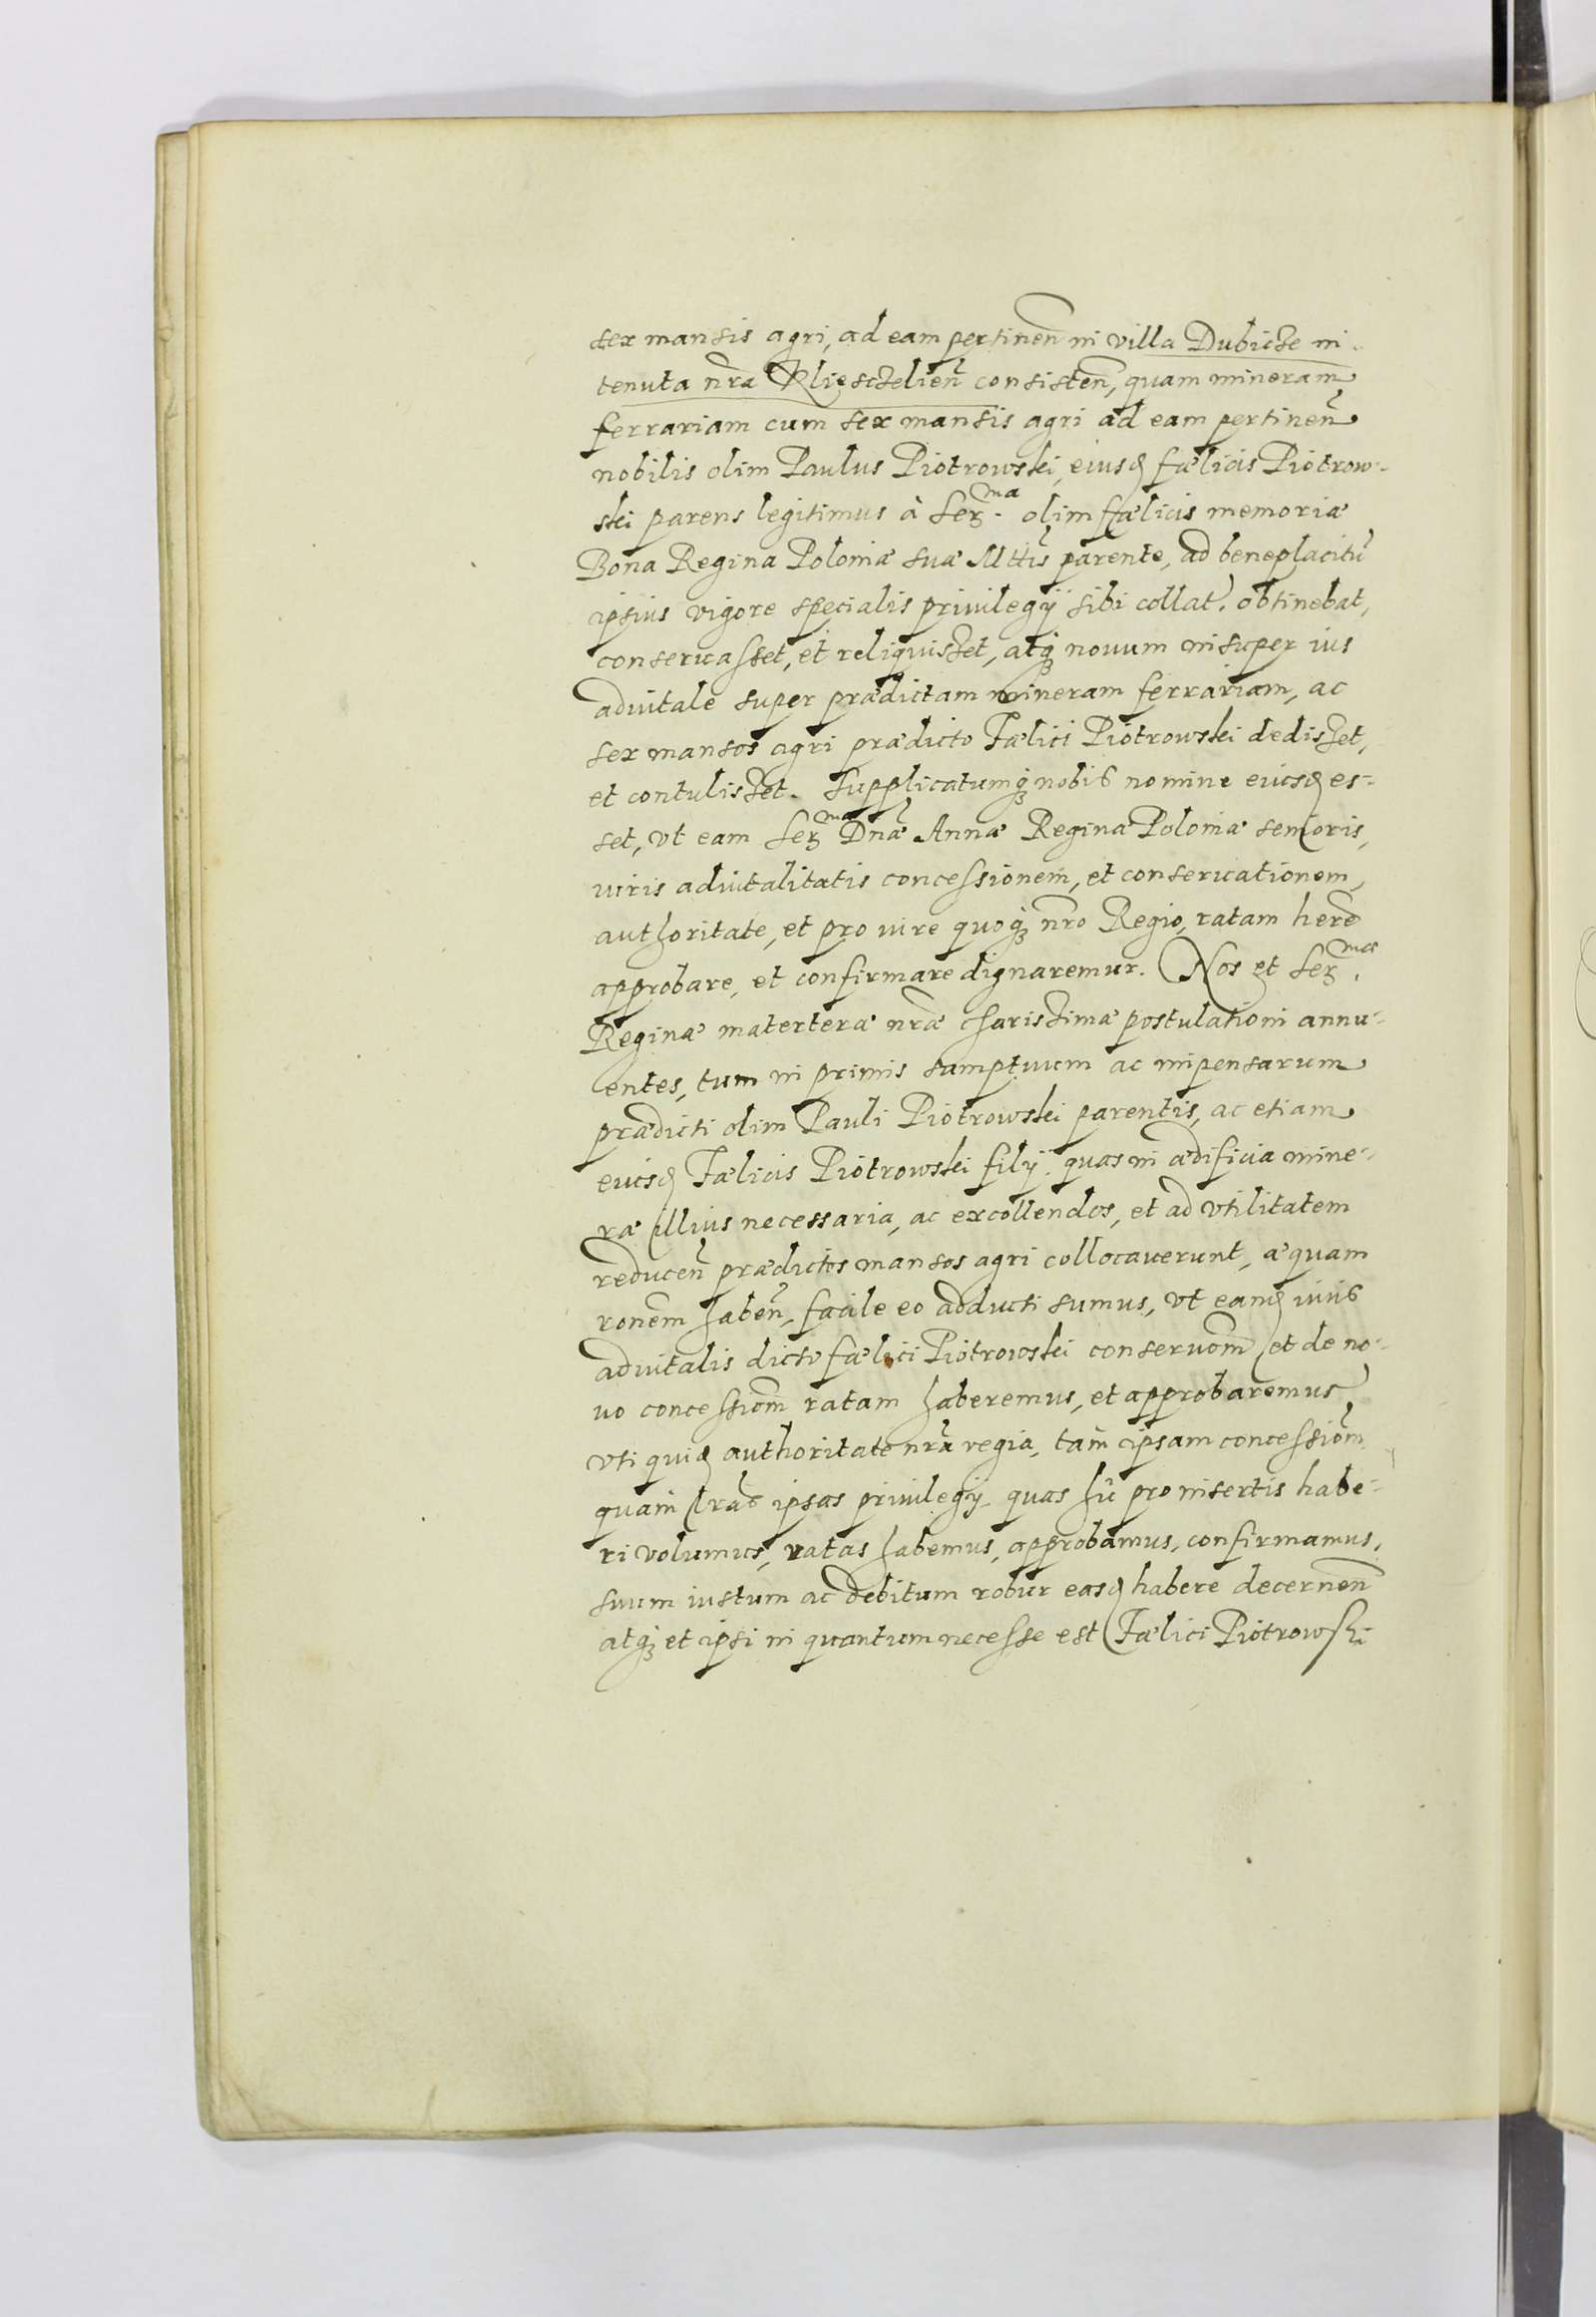 sex mansis agri, ad eam pertinen̄ in villa Dubicze in
tenuta nr̄a Kliesczelien̄ consisten̄, quam mineram
ferrariam cum sex mansis agri ad eam pertinen̄
nobilis olim Paulus Piotrowski, eiusd fælicis Piotrow-
ski parens legitimus à Ser.ma olim fælicis memoriæ
Bona Regina Poloniæ suæ Mttis parente, ad beneplacitū
ipsius vigore specialis priuilegij sibi collat. obtinebat,
conseruasset, et reliquisset, atq nouum insuper ius
aduitale super prædictam mineram ferrariam, ac
sex mansos agri prædicto Fælici Piotrowski dedisset,
et contulisset. Supplicatumq nobis nomine eiusd es-
set, vt eam Ser.ma Dnæ Annæ Reginæ Poloniæ senioris,
iuris aduitalitatis concessionem, et conseruationem,
authoritate, et pro iure quoq nr̄o Regio, ratam herē
approbare, et confirmare dignaremur. Nos et Ser.mæ
Reginæ materteræ nr̄æ charissimæ postulationi annu-
entes, tum in primis sumptuum ac impensarum
prædicti olim Pauli Piotrowski parentis, ac etiam
eiusd Fælicis Piotrowski filij, quas in ædificia mine-
ræ illius necessaria, ac excollendos, et ad vtilitatem
reducen̄ prædictos mansos agri collocauerunt, æquam
ronem̄ haben̄, facile eo adducti sumus, vt eand iuris
aduitalis dicto fælici Piotrowski conseruom̄ et de no-
uo concessiom̄ ratam haberemus, et approbaremus
vti quid authoritate nr̄a regia, tam ipsam concessiom̄
quam lr̄as ipsas priuilegij quas hic pro insertis habe-
ri volumus, ratas habemus, approbamus, confirmamus,
suum iustum ac debitum robur easd habere decernen̄
atq et ipsi in quantum necesse est Fælici Piotrowski